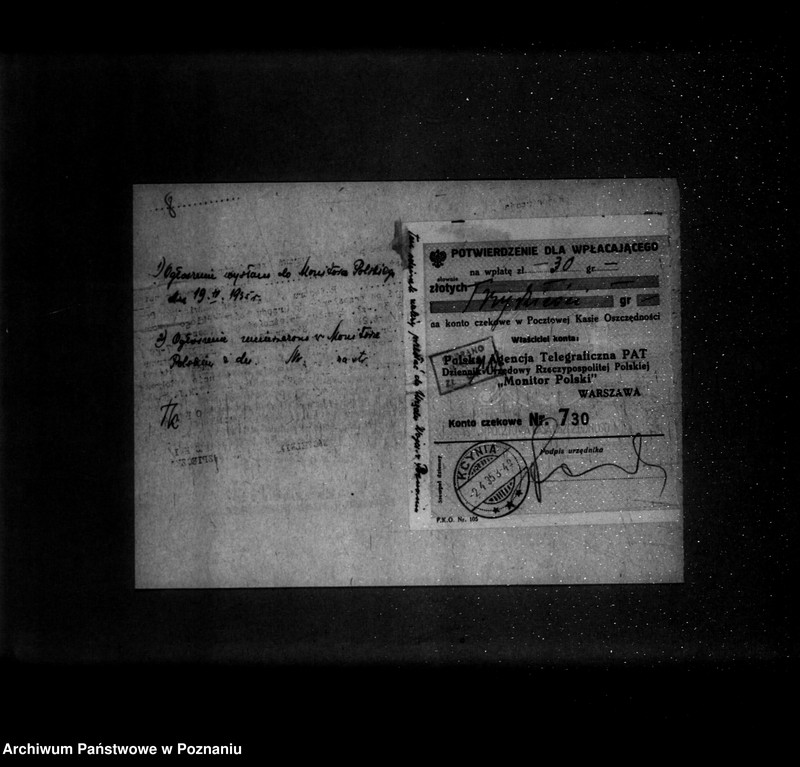 8
1) Ogłoszenie wysłano do Monitora Polskiego
dnia 19. 1935 r.
2) Ogłoszenie umieszczono w Monitorze
Polskim z dn. Nr.
Ten odcinek należy przesłać do Urzędu Wojew. w Poznaniu
POTWIERDZENIE DLA WPŁACAJĄCEGO
na wpłatę zł. — 30 gr —
słownie
złotych Trzydzieści — gr —
na konto czekowe w Pocztowej Kasie Oszczędności
Właściciel konta:
Polska Agencja Telegraficzna PAT
Dziennik Urzędowy Rzeczypospolitej Polskiej
„Monitor Polski"
WARSZAWA
Konto czekowe Nr. 730
Podpis urzędnika
KCYNIA
-2.4.35
P.K.O. Nr. 105
Archiwum Państwowe w Poznaniu